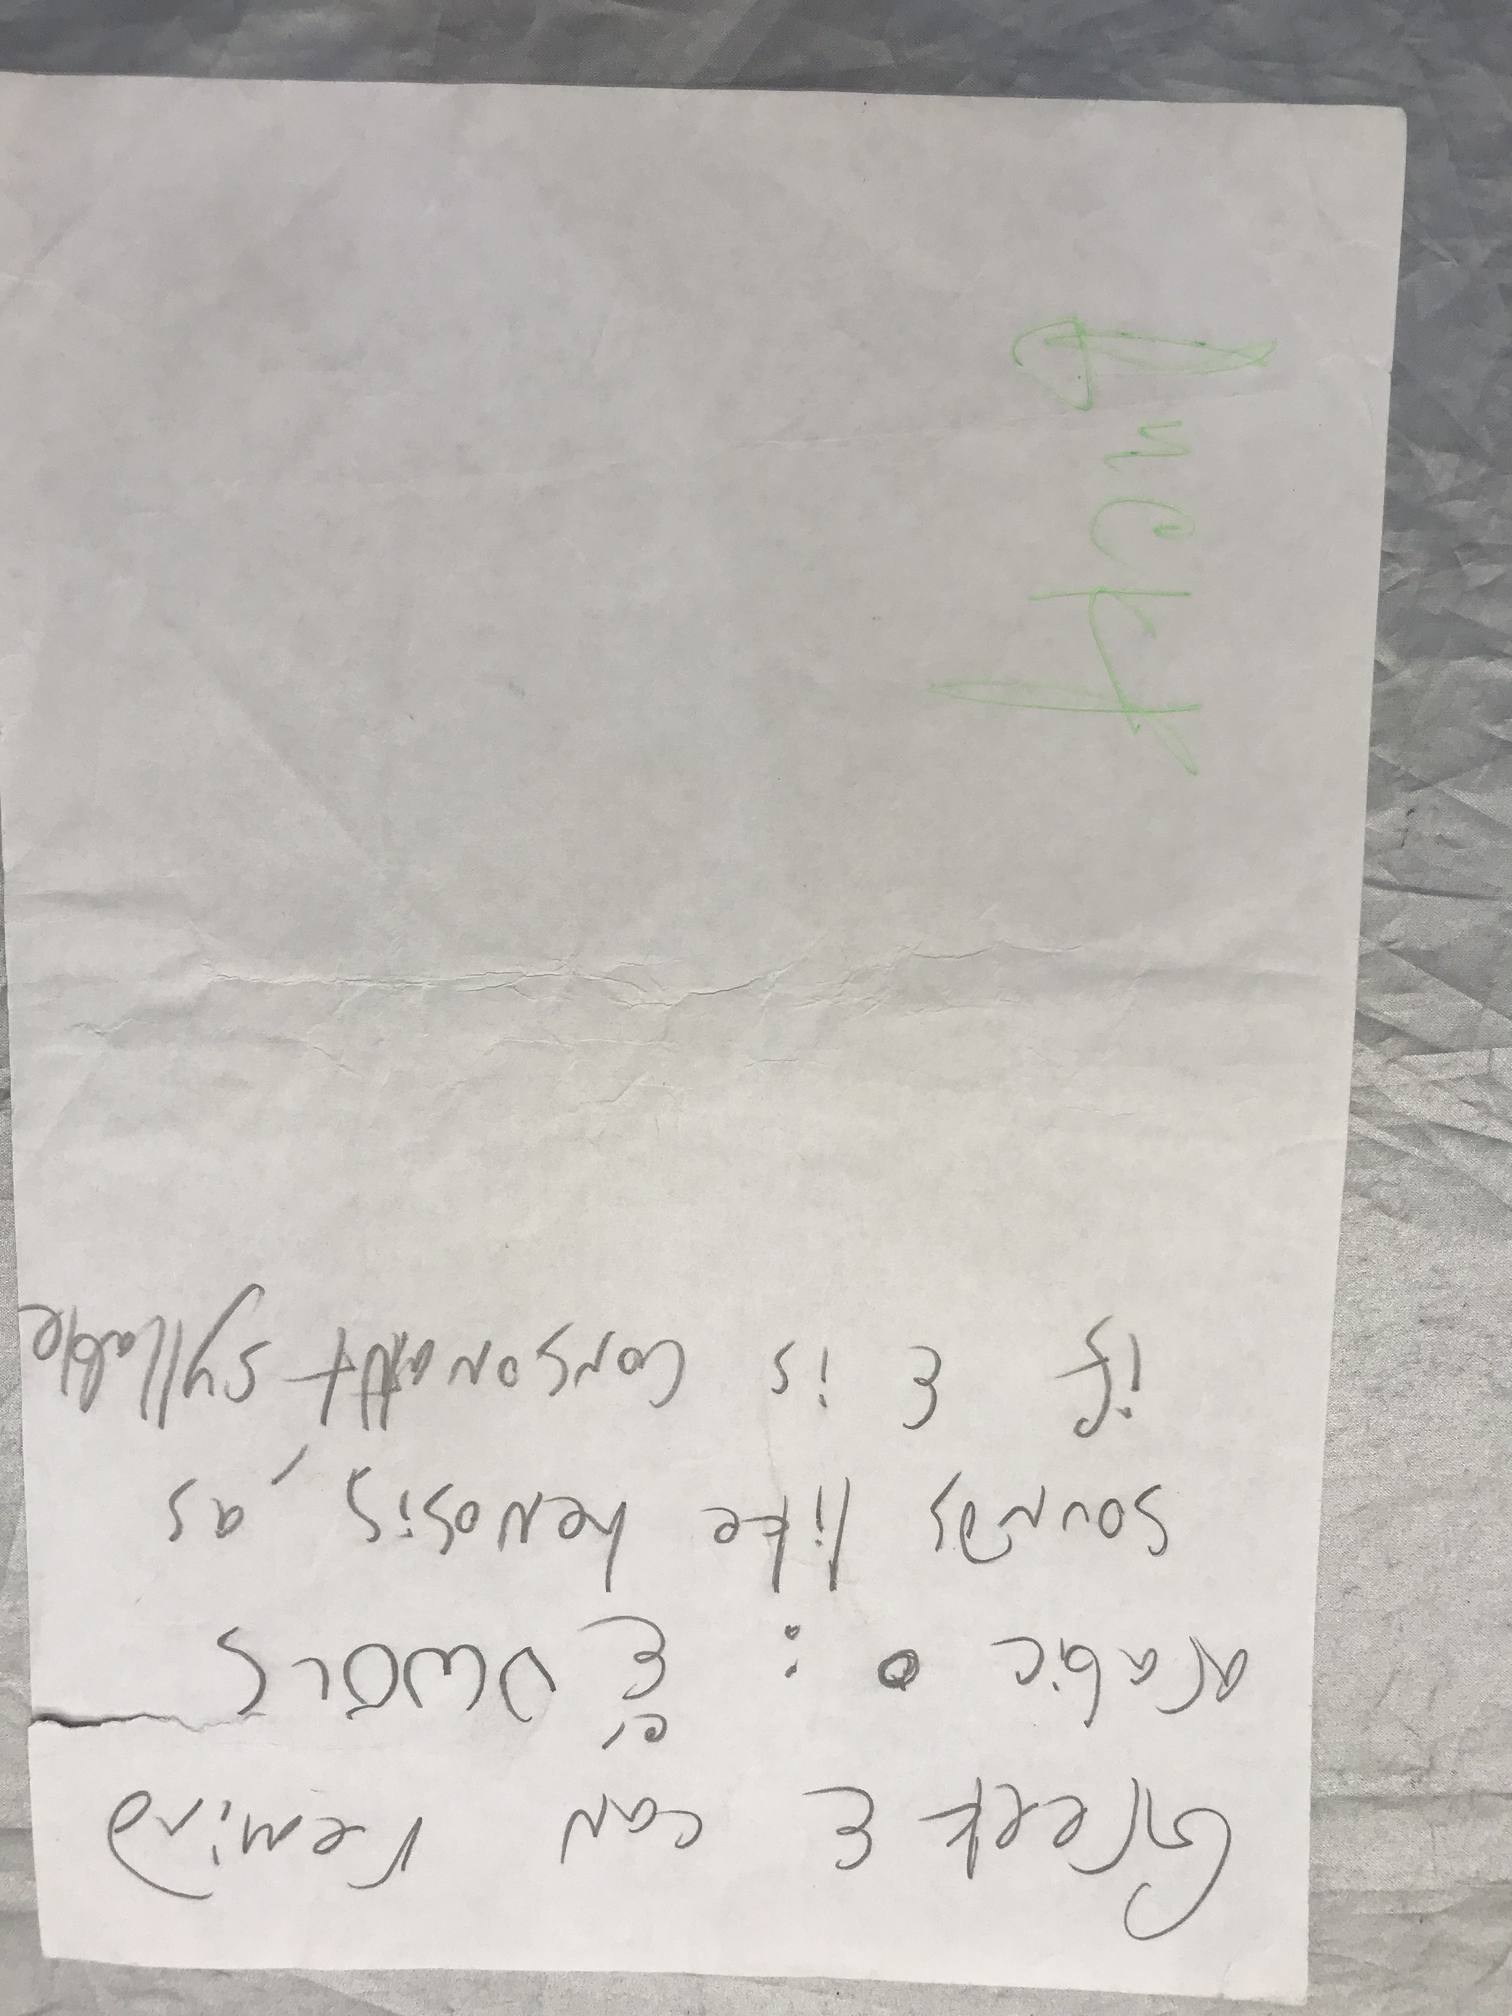 Greek ε can remind
arabic o : ἑνωσις
sounds like henosis, as
if ε is consonant syllable
Lucky